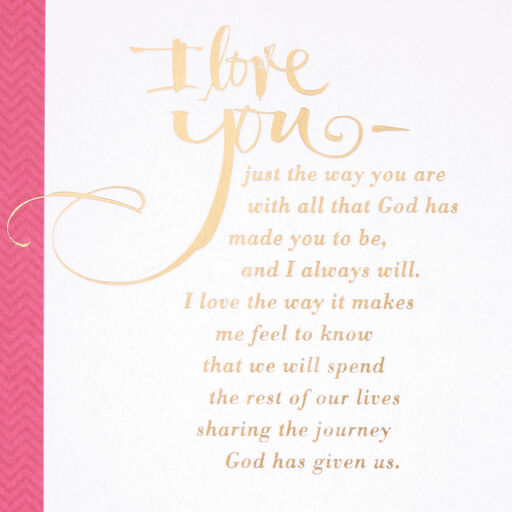 I love
you —
just the way you are
with all that God has
made you to be,
and I always will.
I love the way it makes
me feel to know
that we will spend
the rest of our lives
sharing the journey
God has given us.